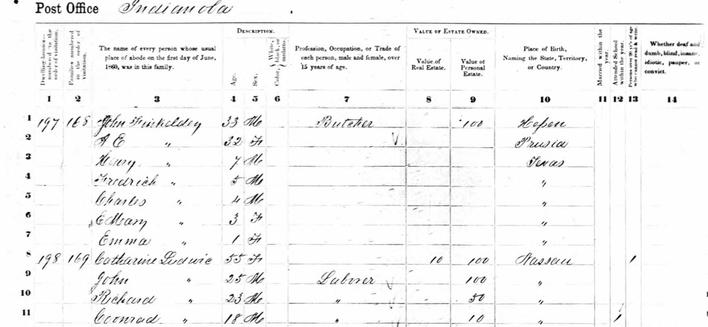 Post Office Indianola
DESCRIPTION. VALUE OF ESTATE OWNED.
Dwelling-houses numbered in the order of visitation. Families numbered in the order of visitation. The name of every person whose usual place of abode on the first day of June, 1860, was in this family. Age. Sex. Color, White, black, or mulatto. Profession, Occupation, or Trade of each person, male and female, over 15 years of age. Value of Real Estate. Value of Personal Estate. Place of Birth, Naming the State, Territory, or Country. Married within the year. Attended School within the year. Whether deaf and dumb, blind, insane, idiotic, pauper, or convict.
1 2 3 4 5 6 7 8 9 10 11 12 13 14
1 197 168 John 33 M Butcher 100
2 A E " 32 F Prusia
3 7 M Texas
4 Fredrich " 5 M "
5 Charles " 4 M "
6 Mary " 3 F "
7 Emma " 1 F "
8 198 169 Catharine Ludwic 55 F 10 100 Nassau 1
9 John " 25 M Laborer 100 "
10 Richard " 23 M " 50 "
11 Conrad " 18 M " 10 " 1